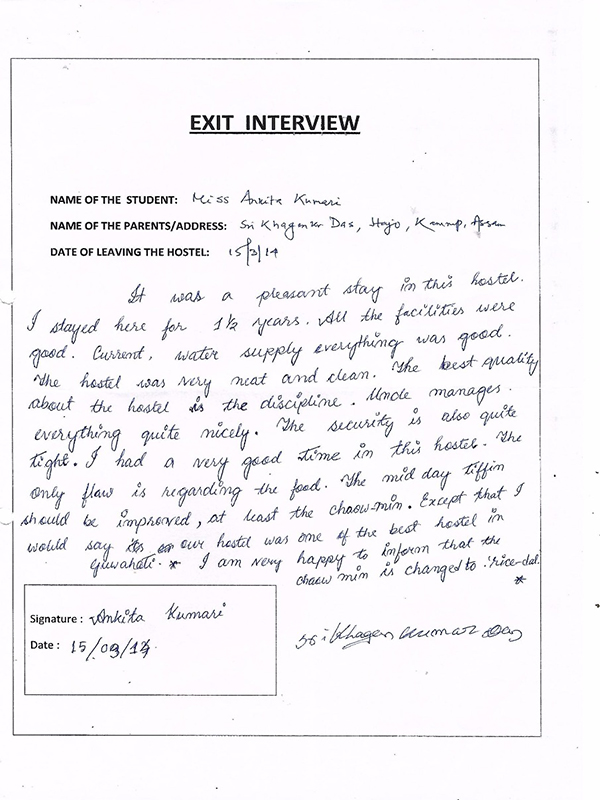 EXIT INTERVIEW
NAME OF THE STUDENT: Miss Ankita Kumari
NAME OF THE PARENTS/ADDRESS: Sri Khagen Kr Das, Hajo, Kamrup, Assam
DATE OF LEAVING THE HOSTEL: 15/3/14
It was a pleasant stay in this hostel.
I stayed here for 1½ years. All the facilities were
good. Current, water supply everything was good.
The hostel was very neat and clean. The best quality
about the hostel is the discipline. Uncle manages
everything quite nicely. The security is also quite
tight. I had a very good time in this hostel. The
only flaw is regarding the food. The mid day tiffin
should be improved, at least the chaow-min. Except that I
would say our hostel was one of the best hostel in
Guwahati. * I am very happy to inform that the
chaow min is changed to 'rice-dal.
*
Signature: Ankita Kumari
Date: 15/03/14
Sri Khagen Kumar Das